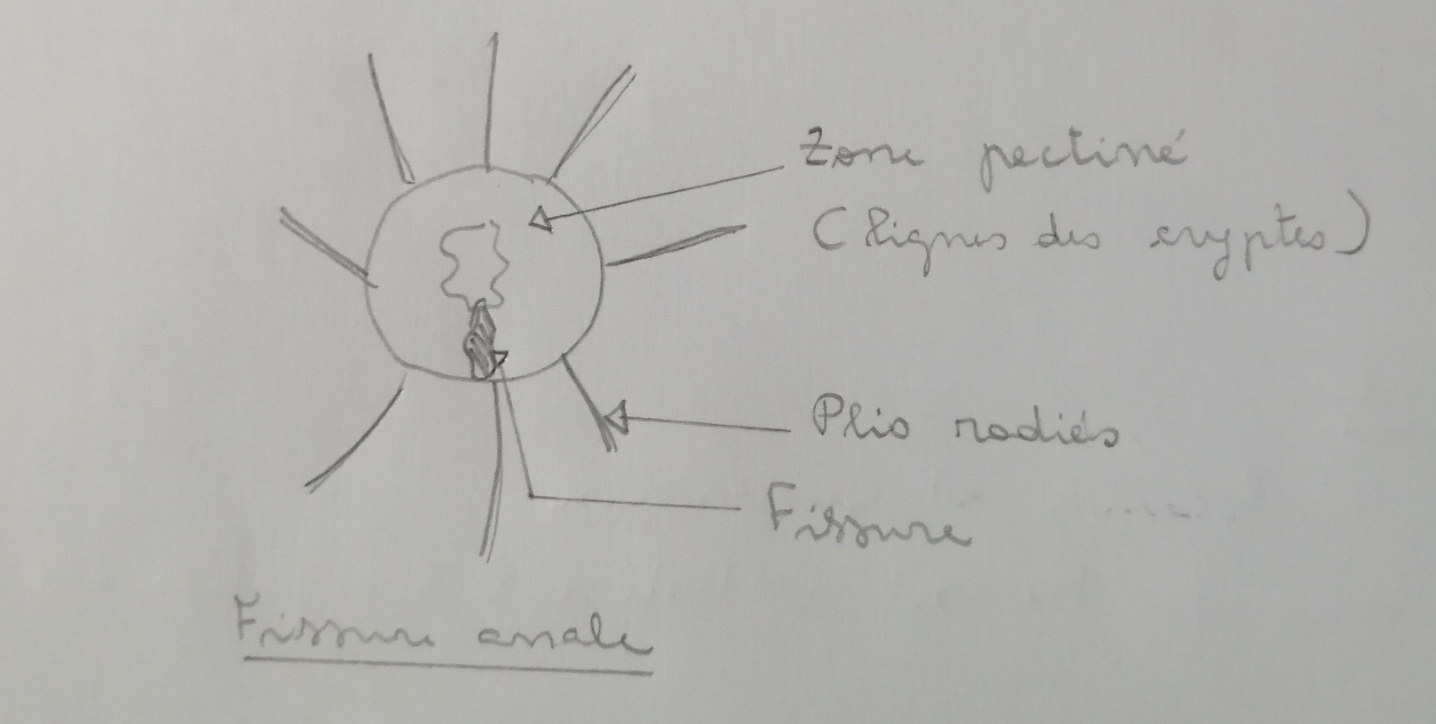 Zone pectiné
(lignes des cryptes)
Plis radiés
Fissure
Fissure anale